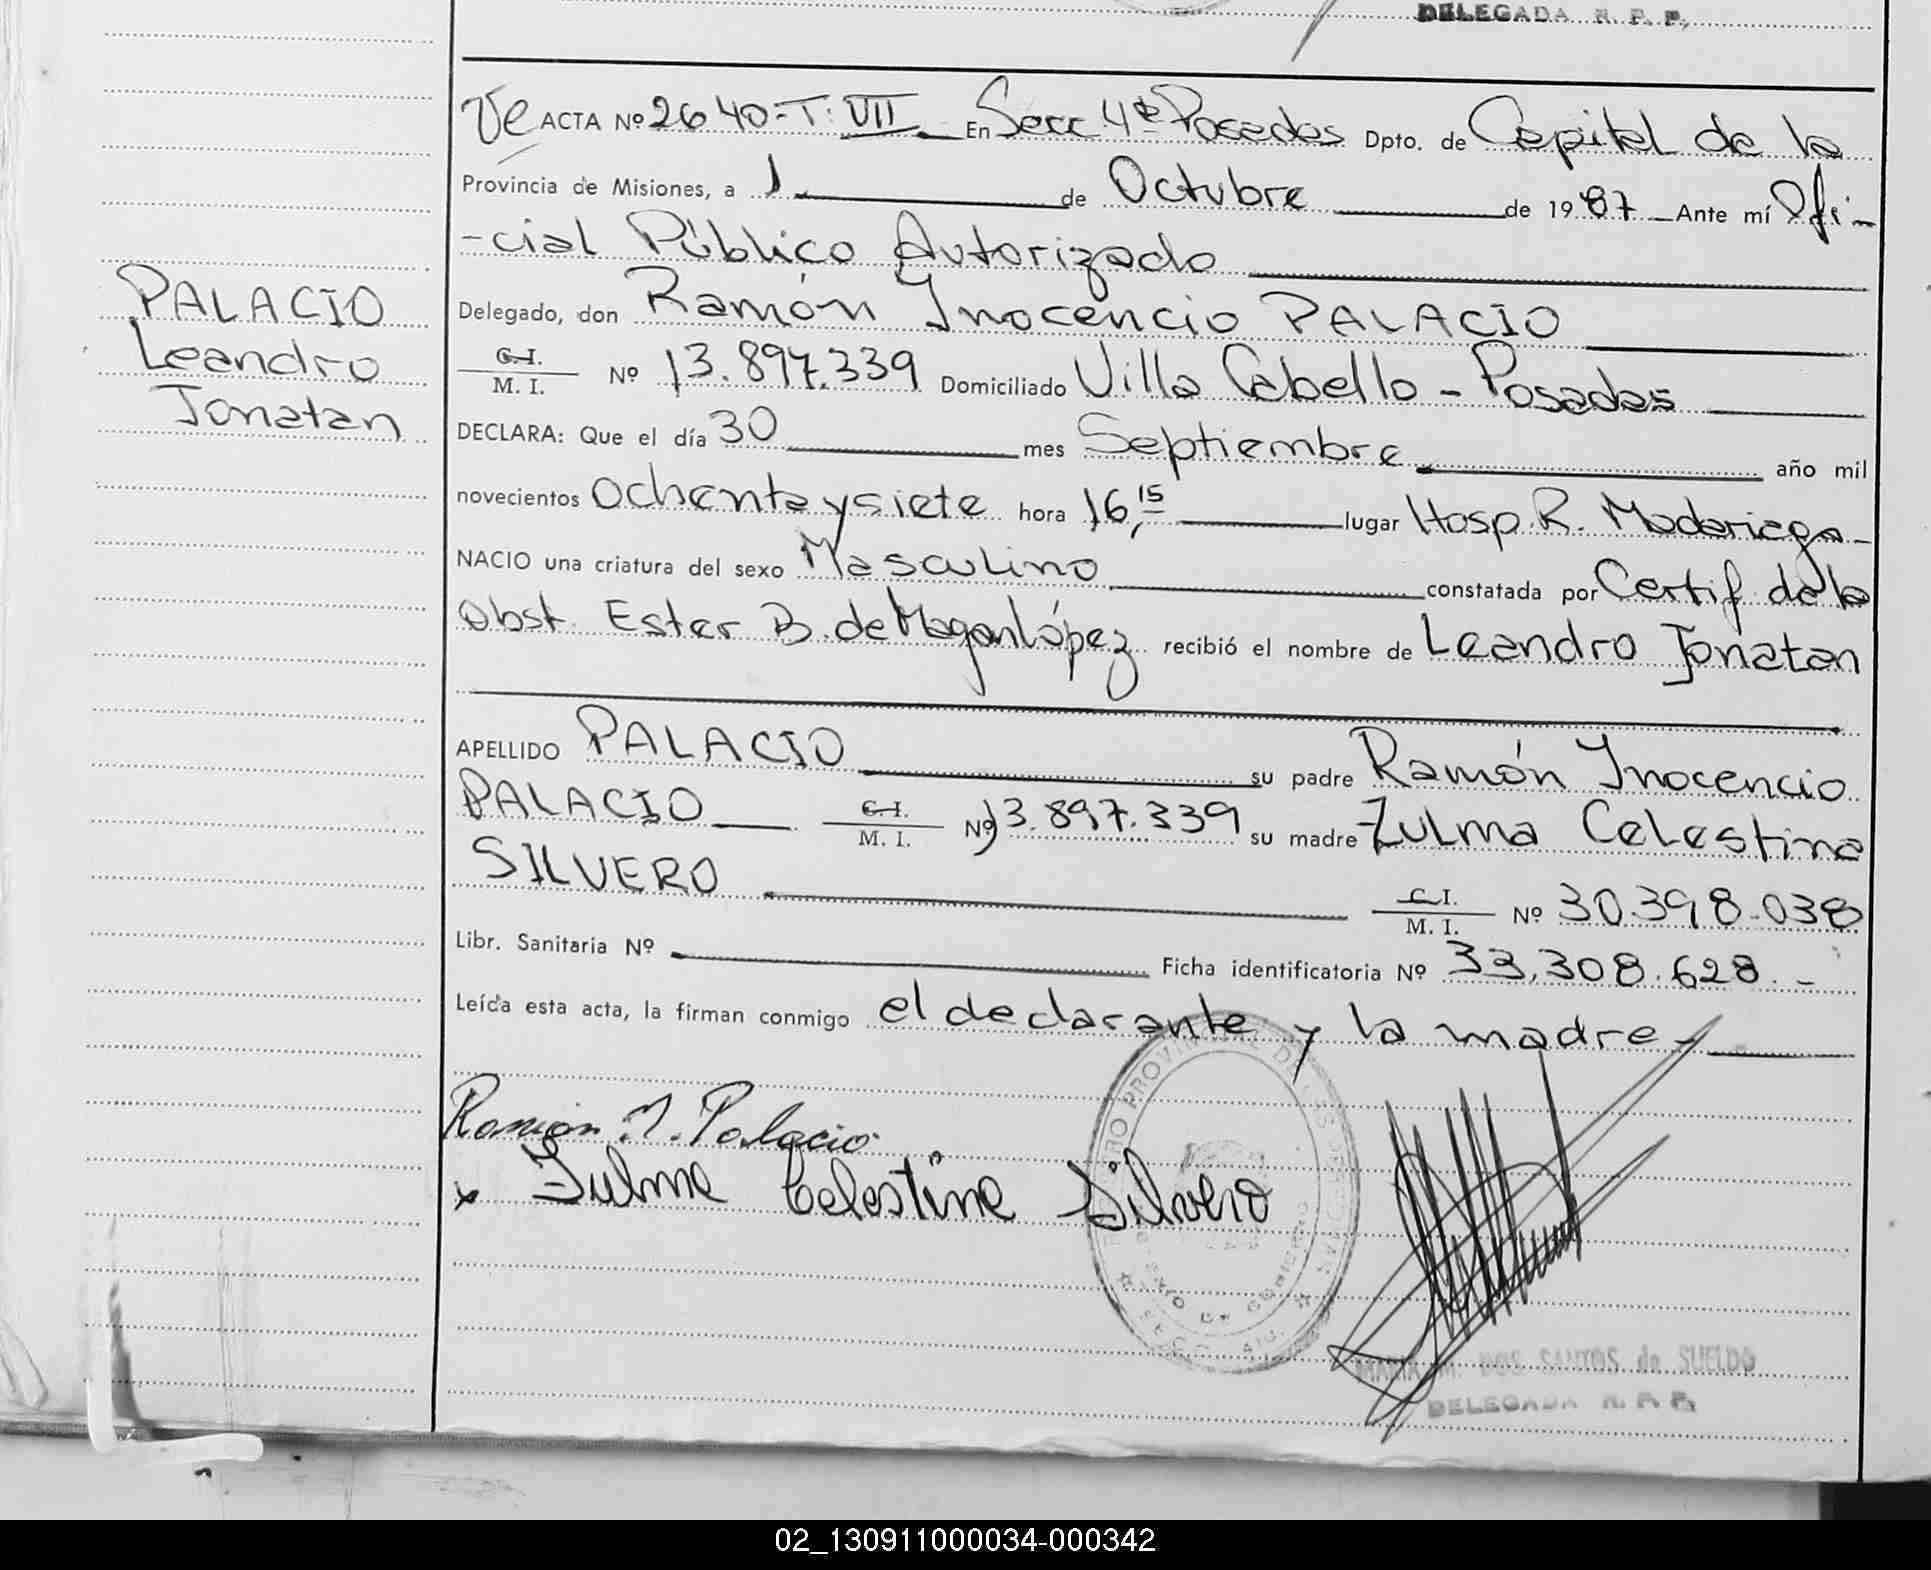 DELEGADA R. P. P.
Ve ACTA Nº 2640-T: VII En Secc 4ª Posadas Dpto. de Capital de la
Provincia de Misiones, a 1 de Octubre de 1987 Ante mí Ofi-
-cial Público Autorizado
Delegado, don Ramón Inocencio PALACIO
C.I. / M. I. Nº 13.897.339 Domiciliado Villa Cabello - Posadas
DECLARA: Que el día 30 mes Septiembre año mil
novecientos Ochentaysiete hora 16,15 lugar Hosp. R. Madariaga-
NACIO una criatura del sexo Masculino constatada por Certif. de la
Obst. Ester B. de López recibió el nombre de Leandro Jonatan
APELLIDO PALACIO su padre Ramón Inocencio
PALACIO C.I. / M. I. Nº 13.897.339 su madre Zulma Celestina
SILVERO C.I. / M. I. Nº 30.398.038
Libr. Sanitaria Nº Ficha identificatoria Nº 33,308.628.-
Leída esta acta, la firman conmigo el declarante y la madre-
PALACIO
Leandro
Jonatan
Ramón I. Palacio
x Zulma Celestina Silvero
REGISTRO PROVINCIAL DE LAS PERSONAS
SECC. 4ta.
MARIA M. DOS SANTOS de SUELDO
DELEGADA R. P. P.
02_130911000034-000342